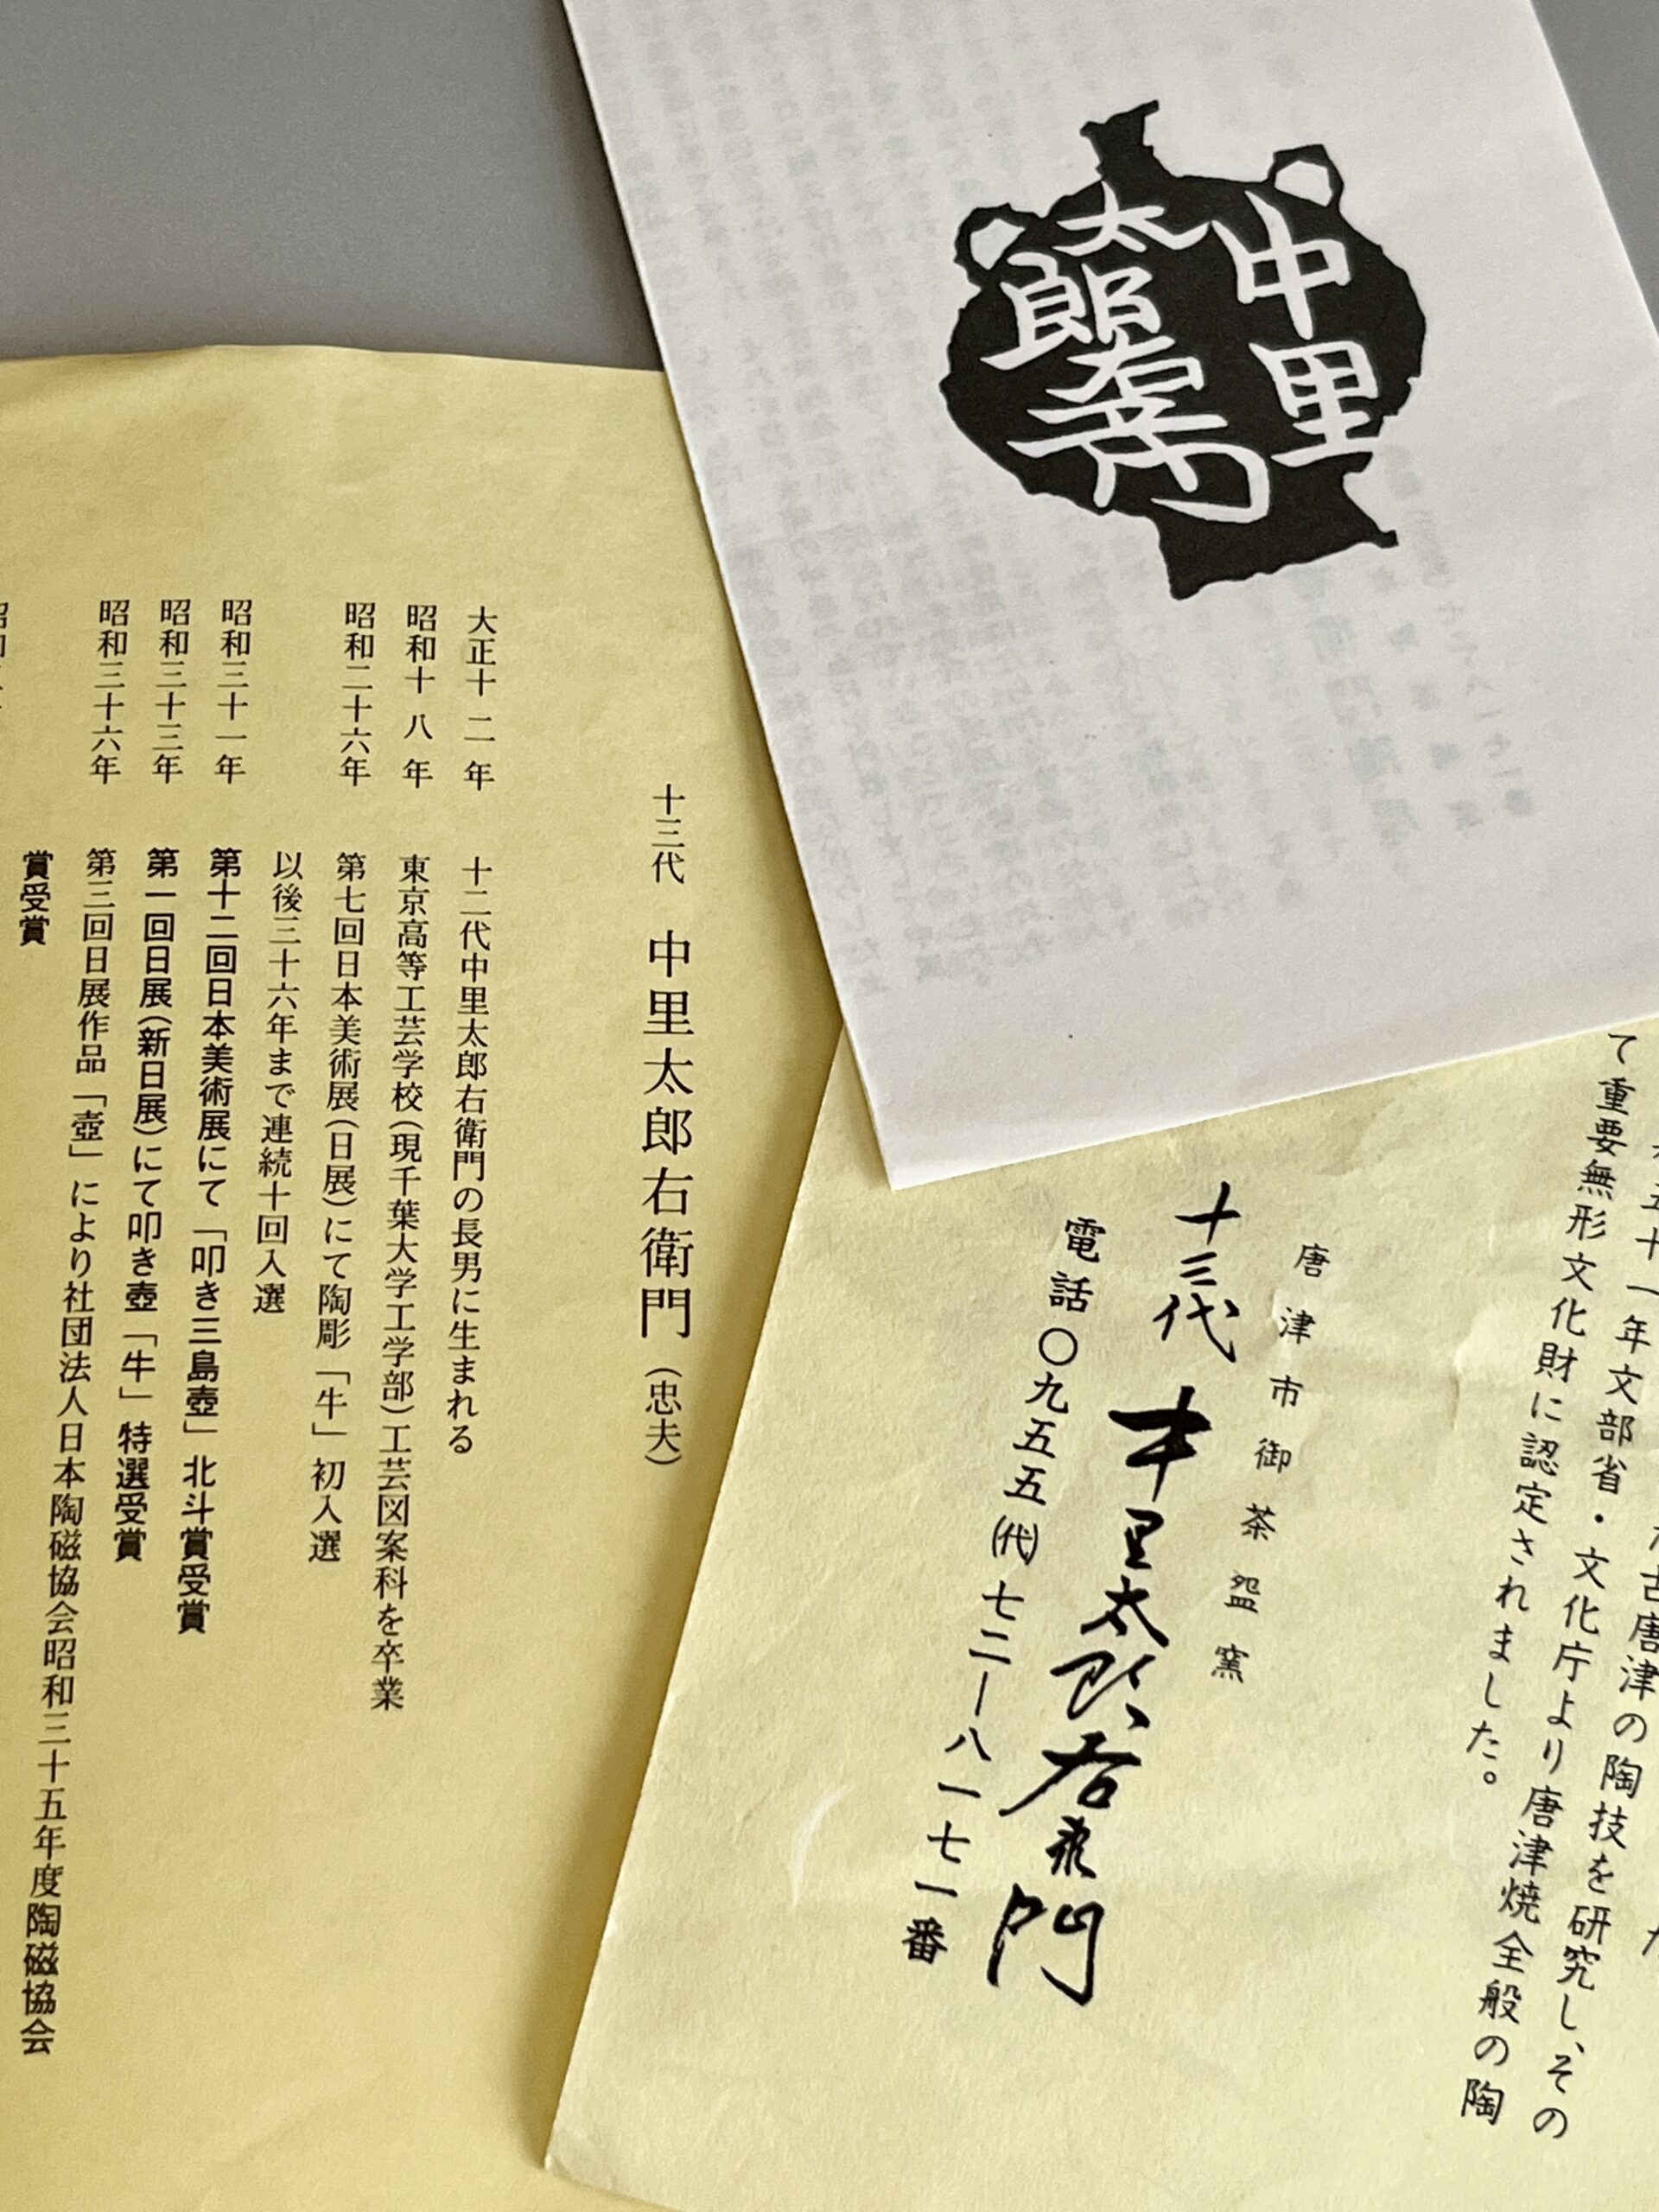 中里
太郎右衛門
て重要無形文化財に認定されました。
五十一年文部省・文化庁より唐津焼全般の陶
古唐津の陶技を研究し、その
唐津市御茶盌窯
十三代 中里太郎右衛門
電話〇九五五(代)七二―八一七一番
十三代 中里太郎右衛門(忠夫)
大正十二年 十二代中里太郎右衛門の長男に生まれる
昭和十八年 東京高等工芸学校(現千葉大学工学部)工芸図案科を卒業
昭和二十六年 第七回日本美術展(日展)にて陶彫「牛」初入選
以後三十六年まで連続十回入選
昭和三十一年 第十二回日本美術展にて「叩き三島壺」北斗賞受賞
昭和三十三年 第一回日展(新日展)にて叩き壺「牛」特選受賞
昭和三十六年 第三回日展作品「壺」により社団法人日本陶磁協会昭和三十五年度陶磁協会
賞受賞